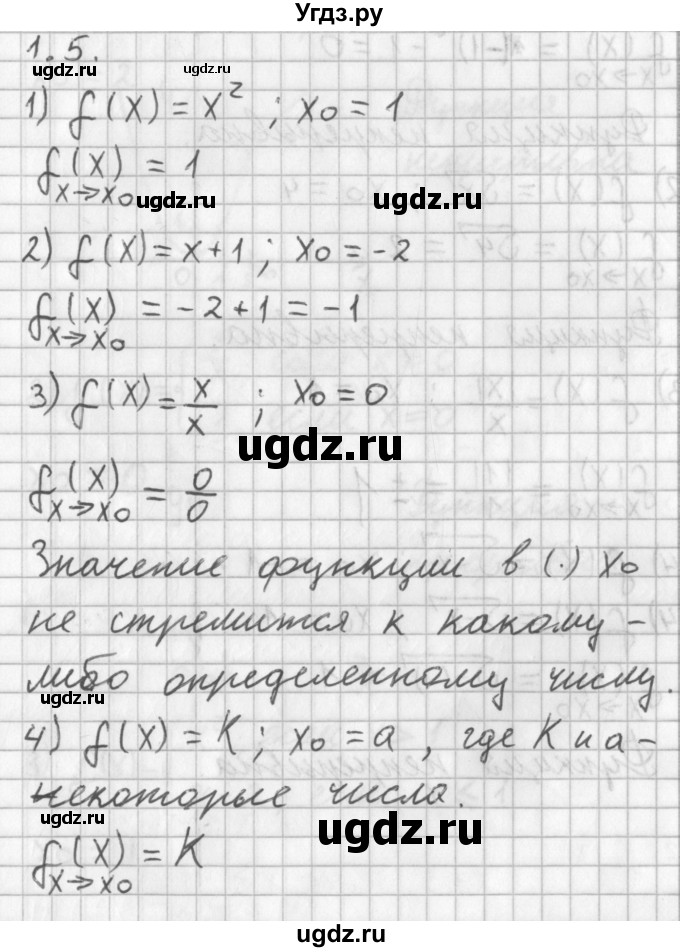 Угдз.ру
1.5.
ugdz.ru ugdz.ru
1) f(x) = x² ; x₀ = 1
f(x) = 1
x→x₀
ugdz.ru ugdz.ru
2) f(x) = x+1 ; x₀ = -2
f(x) = -2+1 = -1
x→x₀
3) f(x) = x/x ; x₀ = 0
ugdz.ru
f(x) = 0/0
x→x₀
Значение функции в (·) x₀
не стремится к какому-
либо определенному числу.
ugdz.ru
4) f(x) = K; x₀ = a, где K и a-
некоторые числа.
ugdz.ru ugdz.ru
f(x) = K
x→x₀
ugdz.ru